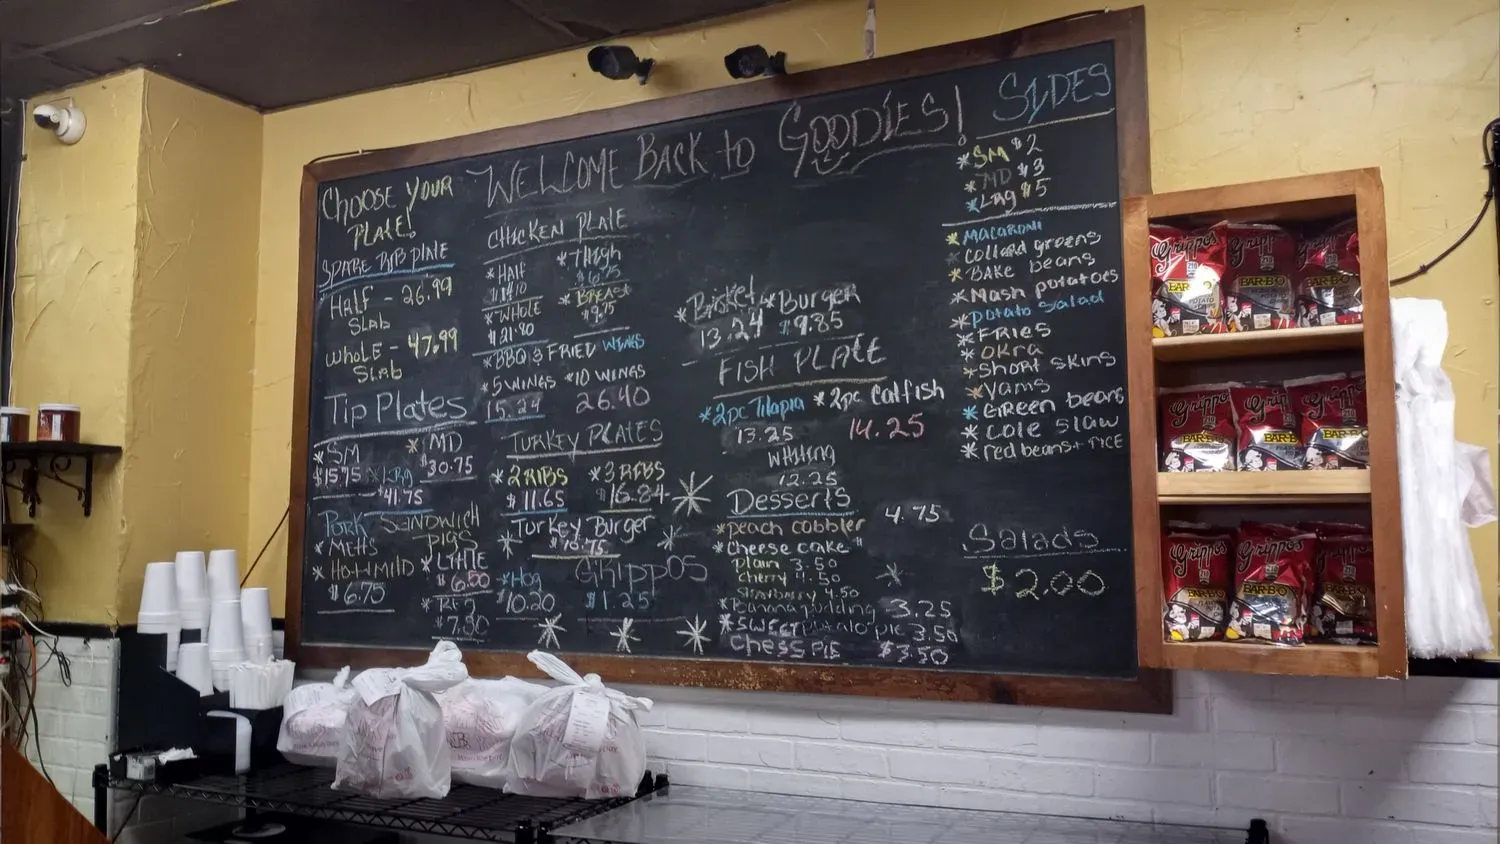 WELCOME BACK to GOODIES!
CHOOSE YOUR
PLATE!
SPARE RIB PLATE
HALF - 26.99
SLAB
WHOLE - 47.99
SLAB
Tip Plates
*SM
$15.75
*MD
$30.75
*LRG
$41.75
PORK SANDWICH
*METTS
* HOT MILD
$6.75
PIGS
$6.50
CHICKEN PLATE
*HALF
*WHOLE
$21.80
*THIGH
$6.75
*BREAST
$9.75
*BBQ & FRIED WINGS
*5 WINGS *10 WINGS
15.24 26.40
TURKEY PLATES
*2 RIBS *3 RIBS
$11.65 $16.84
*Turkey Burger
*Hog
$10.20
GRIPPOS
$1.25
*Brisket *Burger
13.24 $9.85
FISH PLATE
*2pc Tilapia *2pc Catfish
13.25 14.25
Whiting
12.25
Desserts
*peach cobbler 4.75
*Cheese cake"
Plain 3.50
Cherry 4.50
Strawberry 4.50
*Banana pudding 3.25
*SWEET potato pie 3.50
CHESS PIE $3.50
SIDES
*SM $2
*MD $3
*LRG $5
*MACARONI
*Collard greens
*BAKE beans
*Mash potatoes
*Potato Salad
*FRIES
*OKRA
*Short Skins
*Yams
*GREEN beans
*Cole Slaw
*red beans + rice
Salads
$2.00
Grippos
BAR-B-Q
POTATO CHIPS
Grippos
BAR-B-Q
Grippos
BAR-B-Q
Grippos
BAR-B-Q